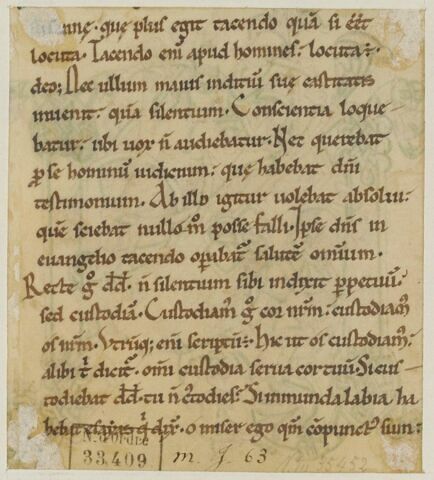 nnę. quę plus egit tacendo quā si eēt
locuta. Tacendo enī apud homines. locuta ÷
deo; Nec ullum maius inditiū suę castitatis
inuenit. quā silentium. Conscientia loque
batur. ubi uox n̄ audiebatur. Nec querebat
ꝑ se hominū iudicium. quę habebat dn̄i
testimonium. Ab illo igitur uolebat absolui.
quē sciebat nullo m̊ posse falli. Ipse dn̄s in
euangelio tacendo oꝑabat᷑ salutē omnium.
Recte g̊ dd̄. n̄ silentium sibi indixit ꝑpetuū.
sed custodiā. Custodiam̄ g̊ cor nr̄m. custodiam̄
os nr̄m. Vtrūq; enī scriptū ÷. Hic ut os custodiam̄.
alibi t̄ dicit᷑. omī custodia serua cor tuū. Si cus
todiebat dd̄. tu n̄ c̄todies? Si inmunda labia ha
bebat dix̄. o miser ego qm̄ cōpunct᷒ sum.
N. d'ordre
33.409
m. J. 63
35452